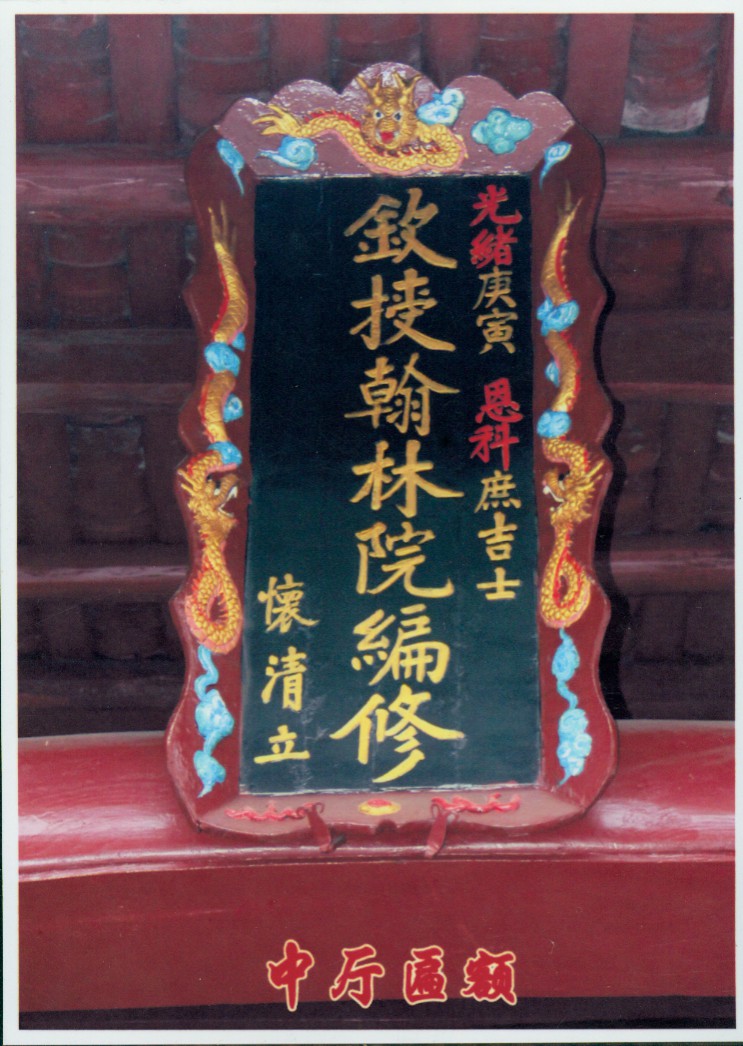 光緒庚寅 恩科庶吉士
欽授翰林院編修
懷清立
中厅匾额